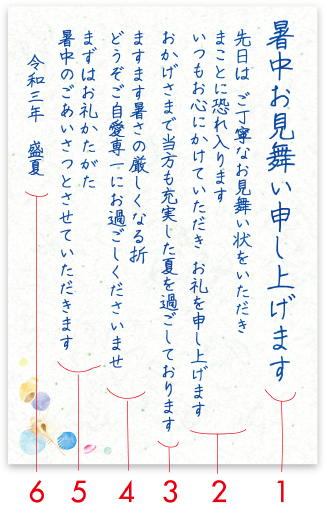 暑中お見舞い申し上げます
先日は ご丁寧なお見舞い状をいただき
まことに恐れ入ります
いつもお心にかけていただき お礼を申し上げます
おかげさまで当方も充実した夏を過ごしております
ますます暑さの厳しくなる折
どうぞご自愛専一にお過ごしくださいませ
まずはお礼かたがた
暑中のごあいさつとさせていただきます
令和三年 盛夏
6 5 4 3 2 1